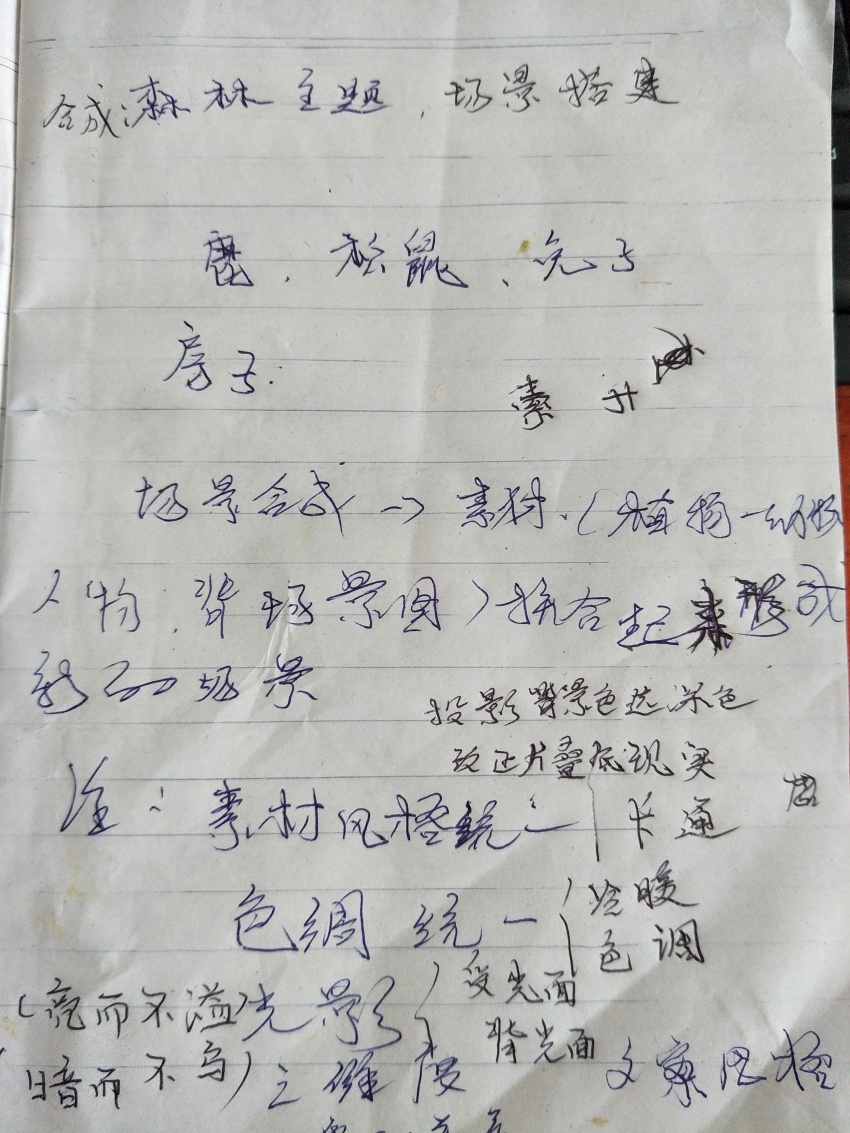 合成:森林主题,场景搭建
鹿、松鼠、兔子
房子.
素 升
场景合成→素材.(植物一动物
人物.背场景图)拼合起来形成
新的场景
投影背景色选深色
改正片叠底现实
注:素材风格统一 卡通
色调统一 冷暖
色调
(亮而不溢)光影 受光面
背光面
暗而不乌) 立体 度 文案风格